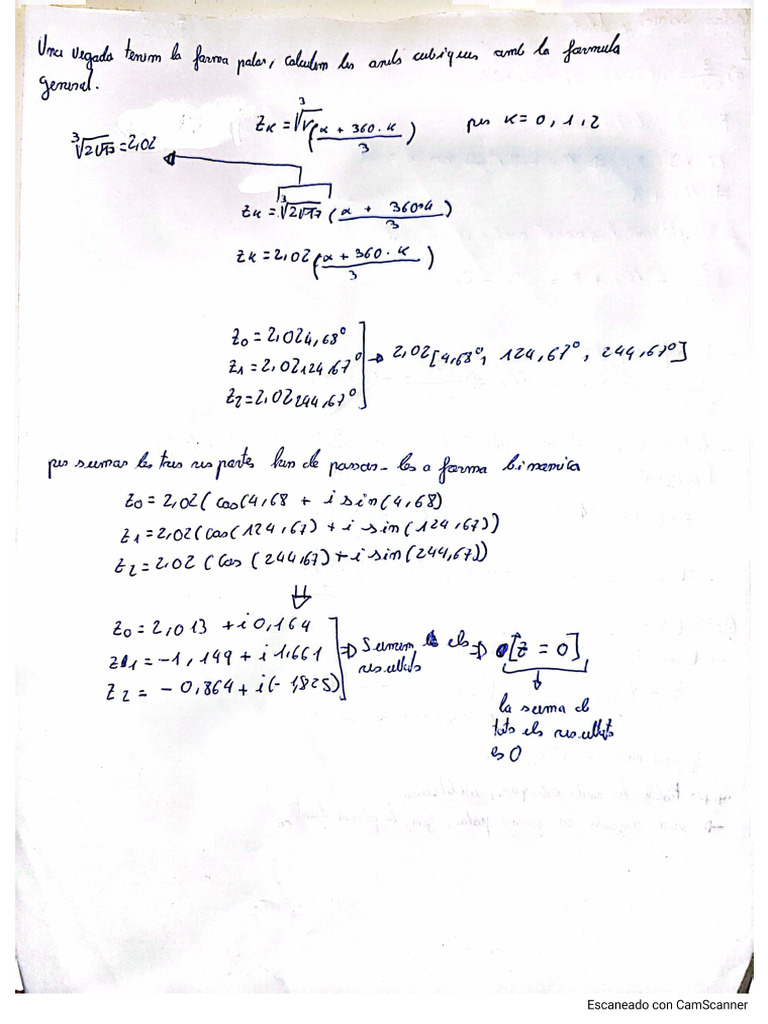 Una vegada tenim la forma polar, calculem les arrels cubiques amb la formula
general.
Zk = ∛r((α + 360·k)/3) per k = 0, 1, 2
∛2√17 = 2,02
Zk = ∛2√17 ((α + 360·k)/3)
Zk = 2,02((α + 360·k)/3)
Z0 = 2,02 4,68°
Z1 = 2,02 124,67°
Z2 = 2,02 244,67°
→ 2,02[4,68°, 124,67°, 244,67°]
per sumar les tres respostes hem de passar-les a forma binomica
Z0 = 2,02(cos(4,68 + i sin(4,68)
Z1 = 2,02(cos(124,67) + i sin(124,67))
Z2 = 2,02(cos(244,67) + i sin(244,67))
⇓
Z0 = 2,013 + i 0,164
Z1 = -1,149 + i 1,661
Z2 = -0,864 + i(-1,825)
⇒ Sumem els
resultats
⇒ [z = 0]
la suma
tots els resultats
es 0
Escaneado con CamScanner